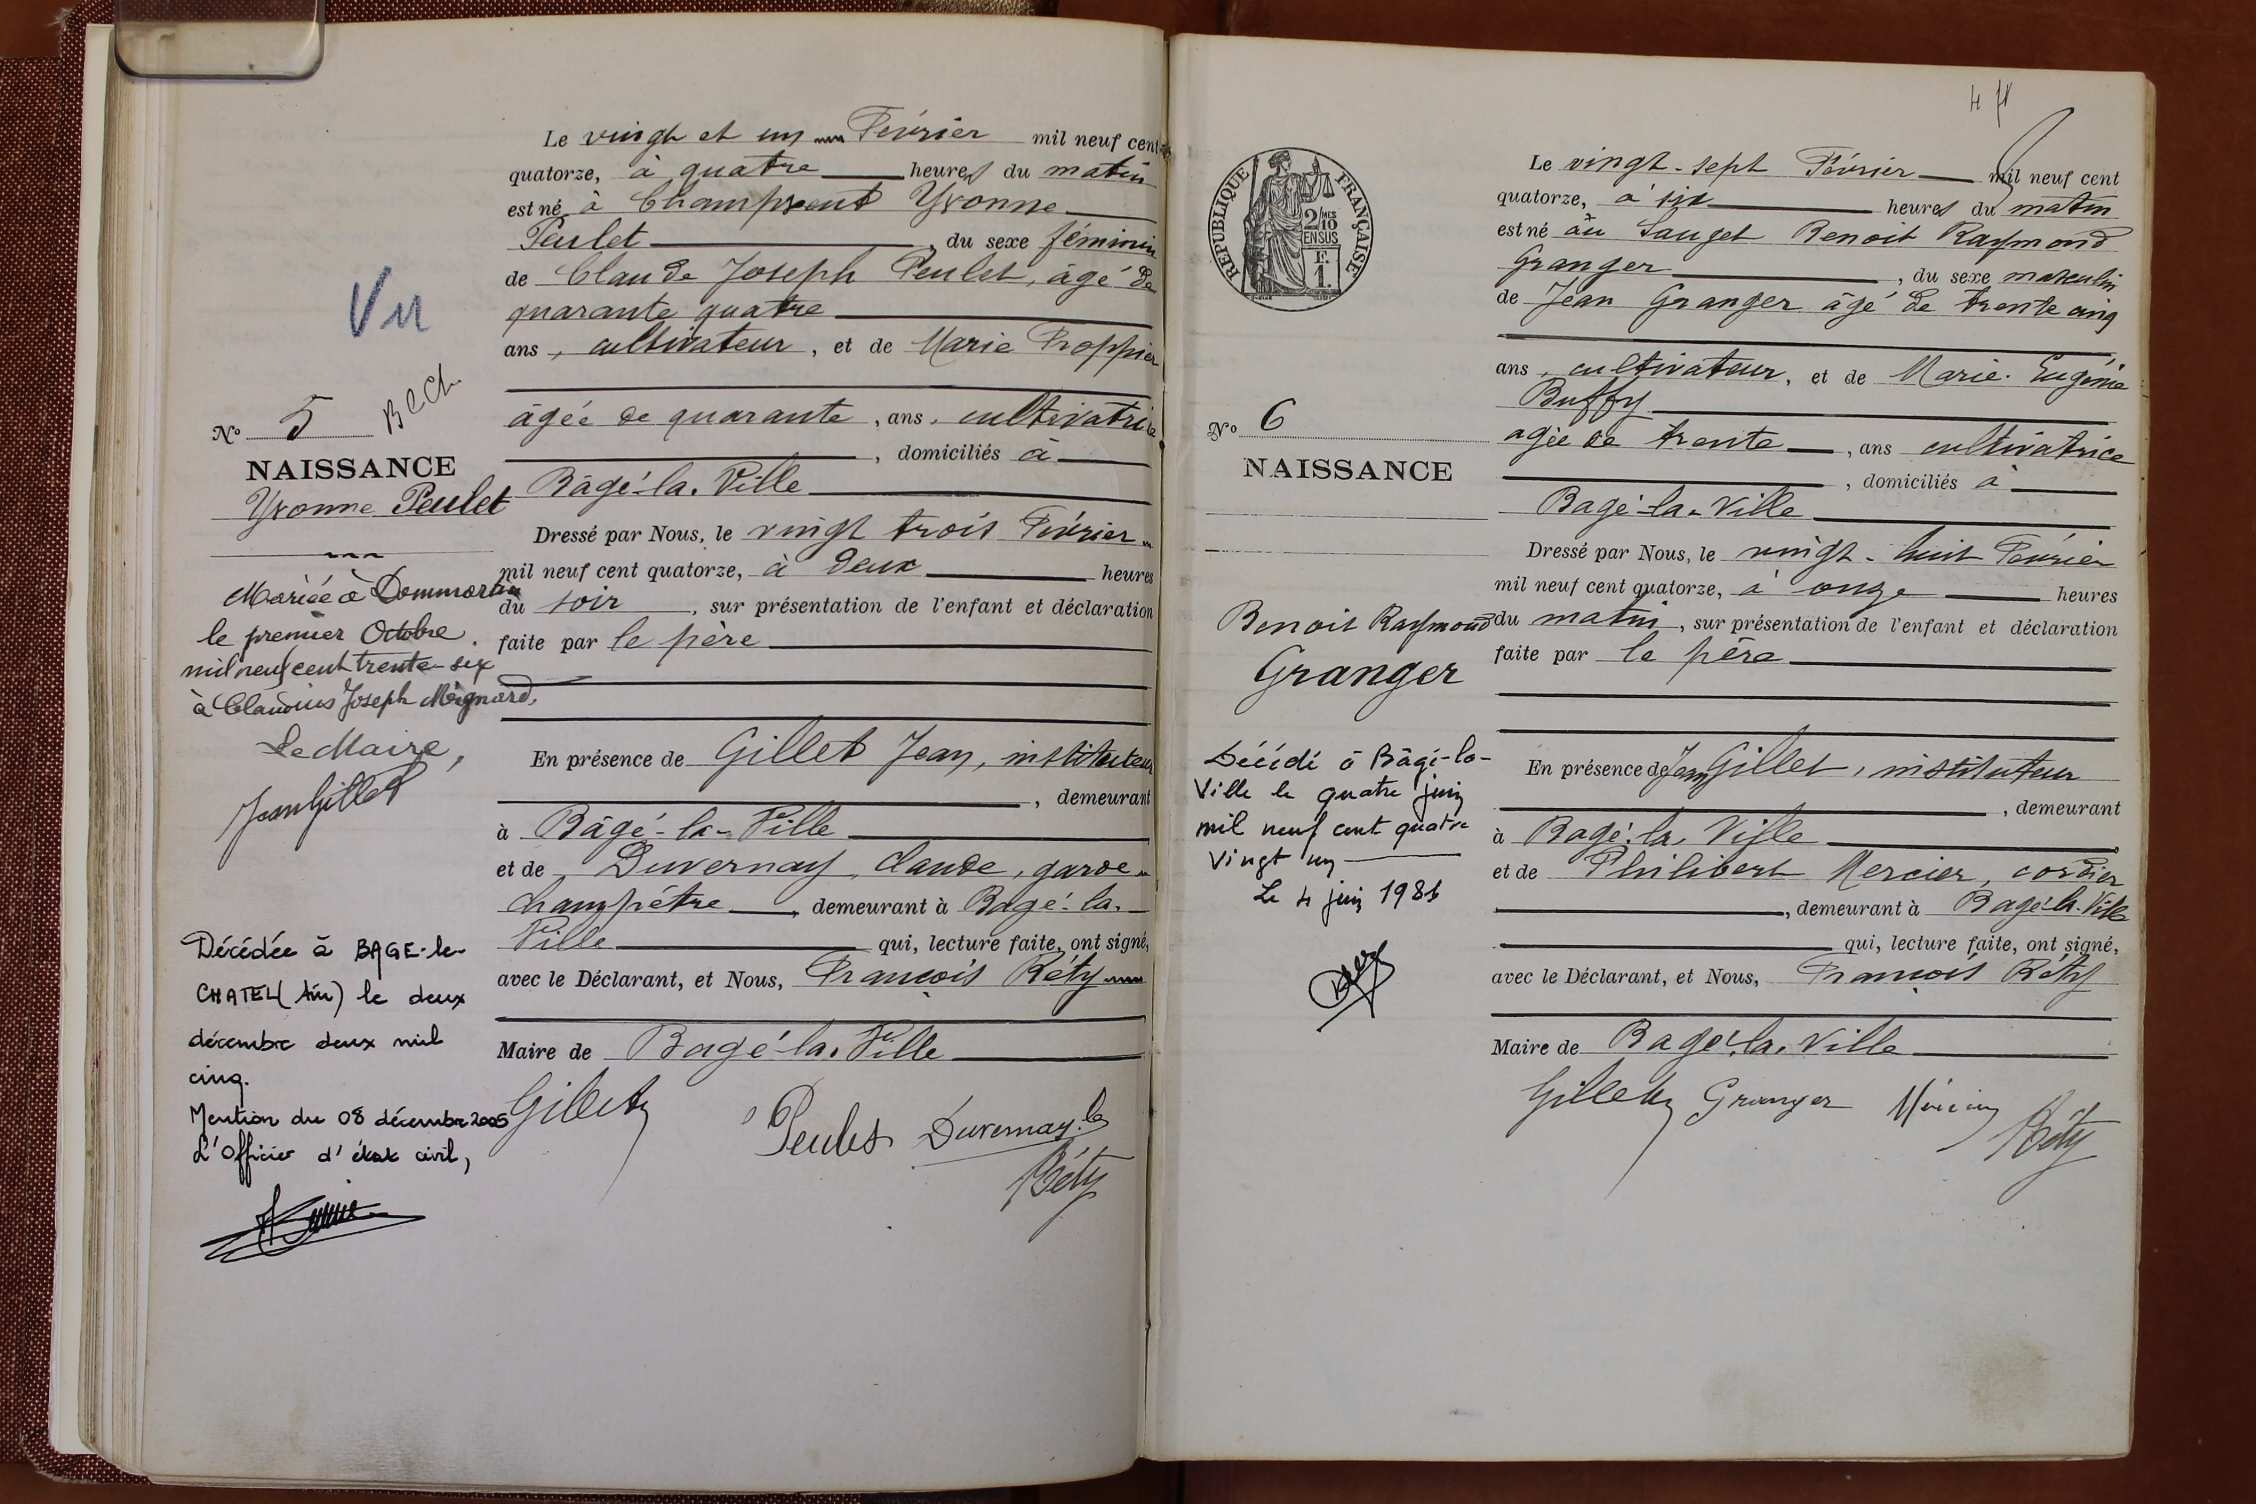 Vu
BCCh
Nº 5
NAISSANCE
Yvonne Peulet
Mariée à Dommartin
le premier Octobre
mil neuf cent trente-six
à Claudius Joseph Mignard,
Le Maire,
Jean Gillet
Décédée à BAGE-le-
CHATEL (Ain) le deux
décembre deux mil
cinq.
Mention du 08 décembre 2005
L'Officier d'état civil,
Le vingt et un Février mil neuf cent
quatorze, à quatre heures du matin
est né à Champvent Yvonne
Peulet, du sexe féminin
de Claude Joseph Peulet, âgé de
quarante quatre
ans, cultivateur, et de Marie Proppier
âgée de quarante, ans, cultivatrice
, domiciliés à
Bâgé-la-Ville
Dressé par Nous, le vingt trois Février
mil neuf cent quatorze, à deux heures
du soir, sur présentation de l'enfant et déclaration
faite par le père
En présence de Gillet Jean, instituteur
, demeurant
à Bâgé-la-Ville
et de Duvernay, Claude, garde
champêtre, demeurant à Bagé-la-
Ville qui, lecture faite, ont signé,
avec le Déclarant, et Nous, François Réty
Maire de Bagé-la-Ville
Gillet Peulet Duvernay
Réty
4
RÉPUBLIQUE FRANÇAISE
2/10
EN SUS
F.
1.
Nº 6
NAISSANCE
Benoit Raymond
Granger
Décédé à Bâgé-la-
Ville le quatre juin
mil neuf cent quatre
vingt un
Le 4 juin 1981
Le vingt-sept Février mil neuf cent
quatorze, à six heures du matin
est né au Sauget Benoit Raymond
Granger, du sexe masculin
de Jean Granger âgé de trente cinq
ans, cultivateur, et de Marie Eugénie
Buffy
agée de trente, ans cultivatrice
, domiciliés à
Bagé-la-Ville
Dressé par Nous, le vingt-huit Février
mil neuf cent quatorze, à onze heures
du matin, sur présentation de l'enfant et déclaration
faite par le père
En présence de Jean Gillet, instituteur
, demeurant
à Bagé-la-Ville
et de Philibert Mercier, cordier
, demeurant à Bagé-la-Ville
qui, lecture faite, ont signé,
avec le Déclarant, et Nous, François Réty
Maire de Bagé-la-Ville
Gillet Granger Mercier
Réty